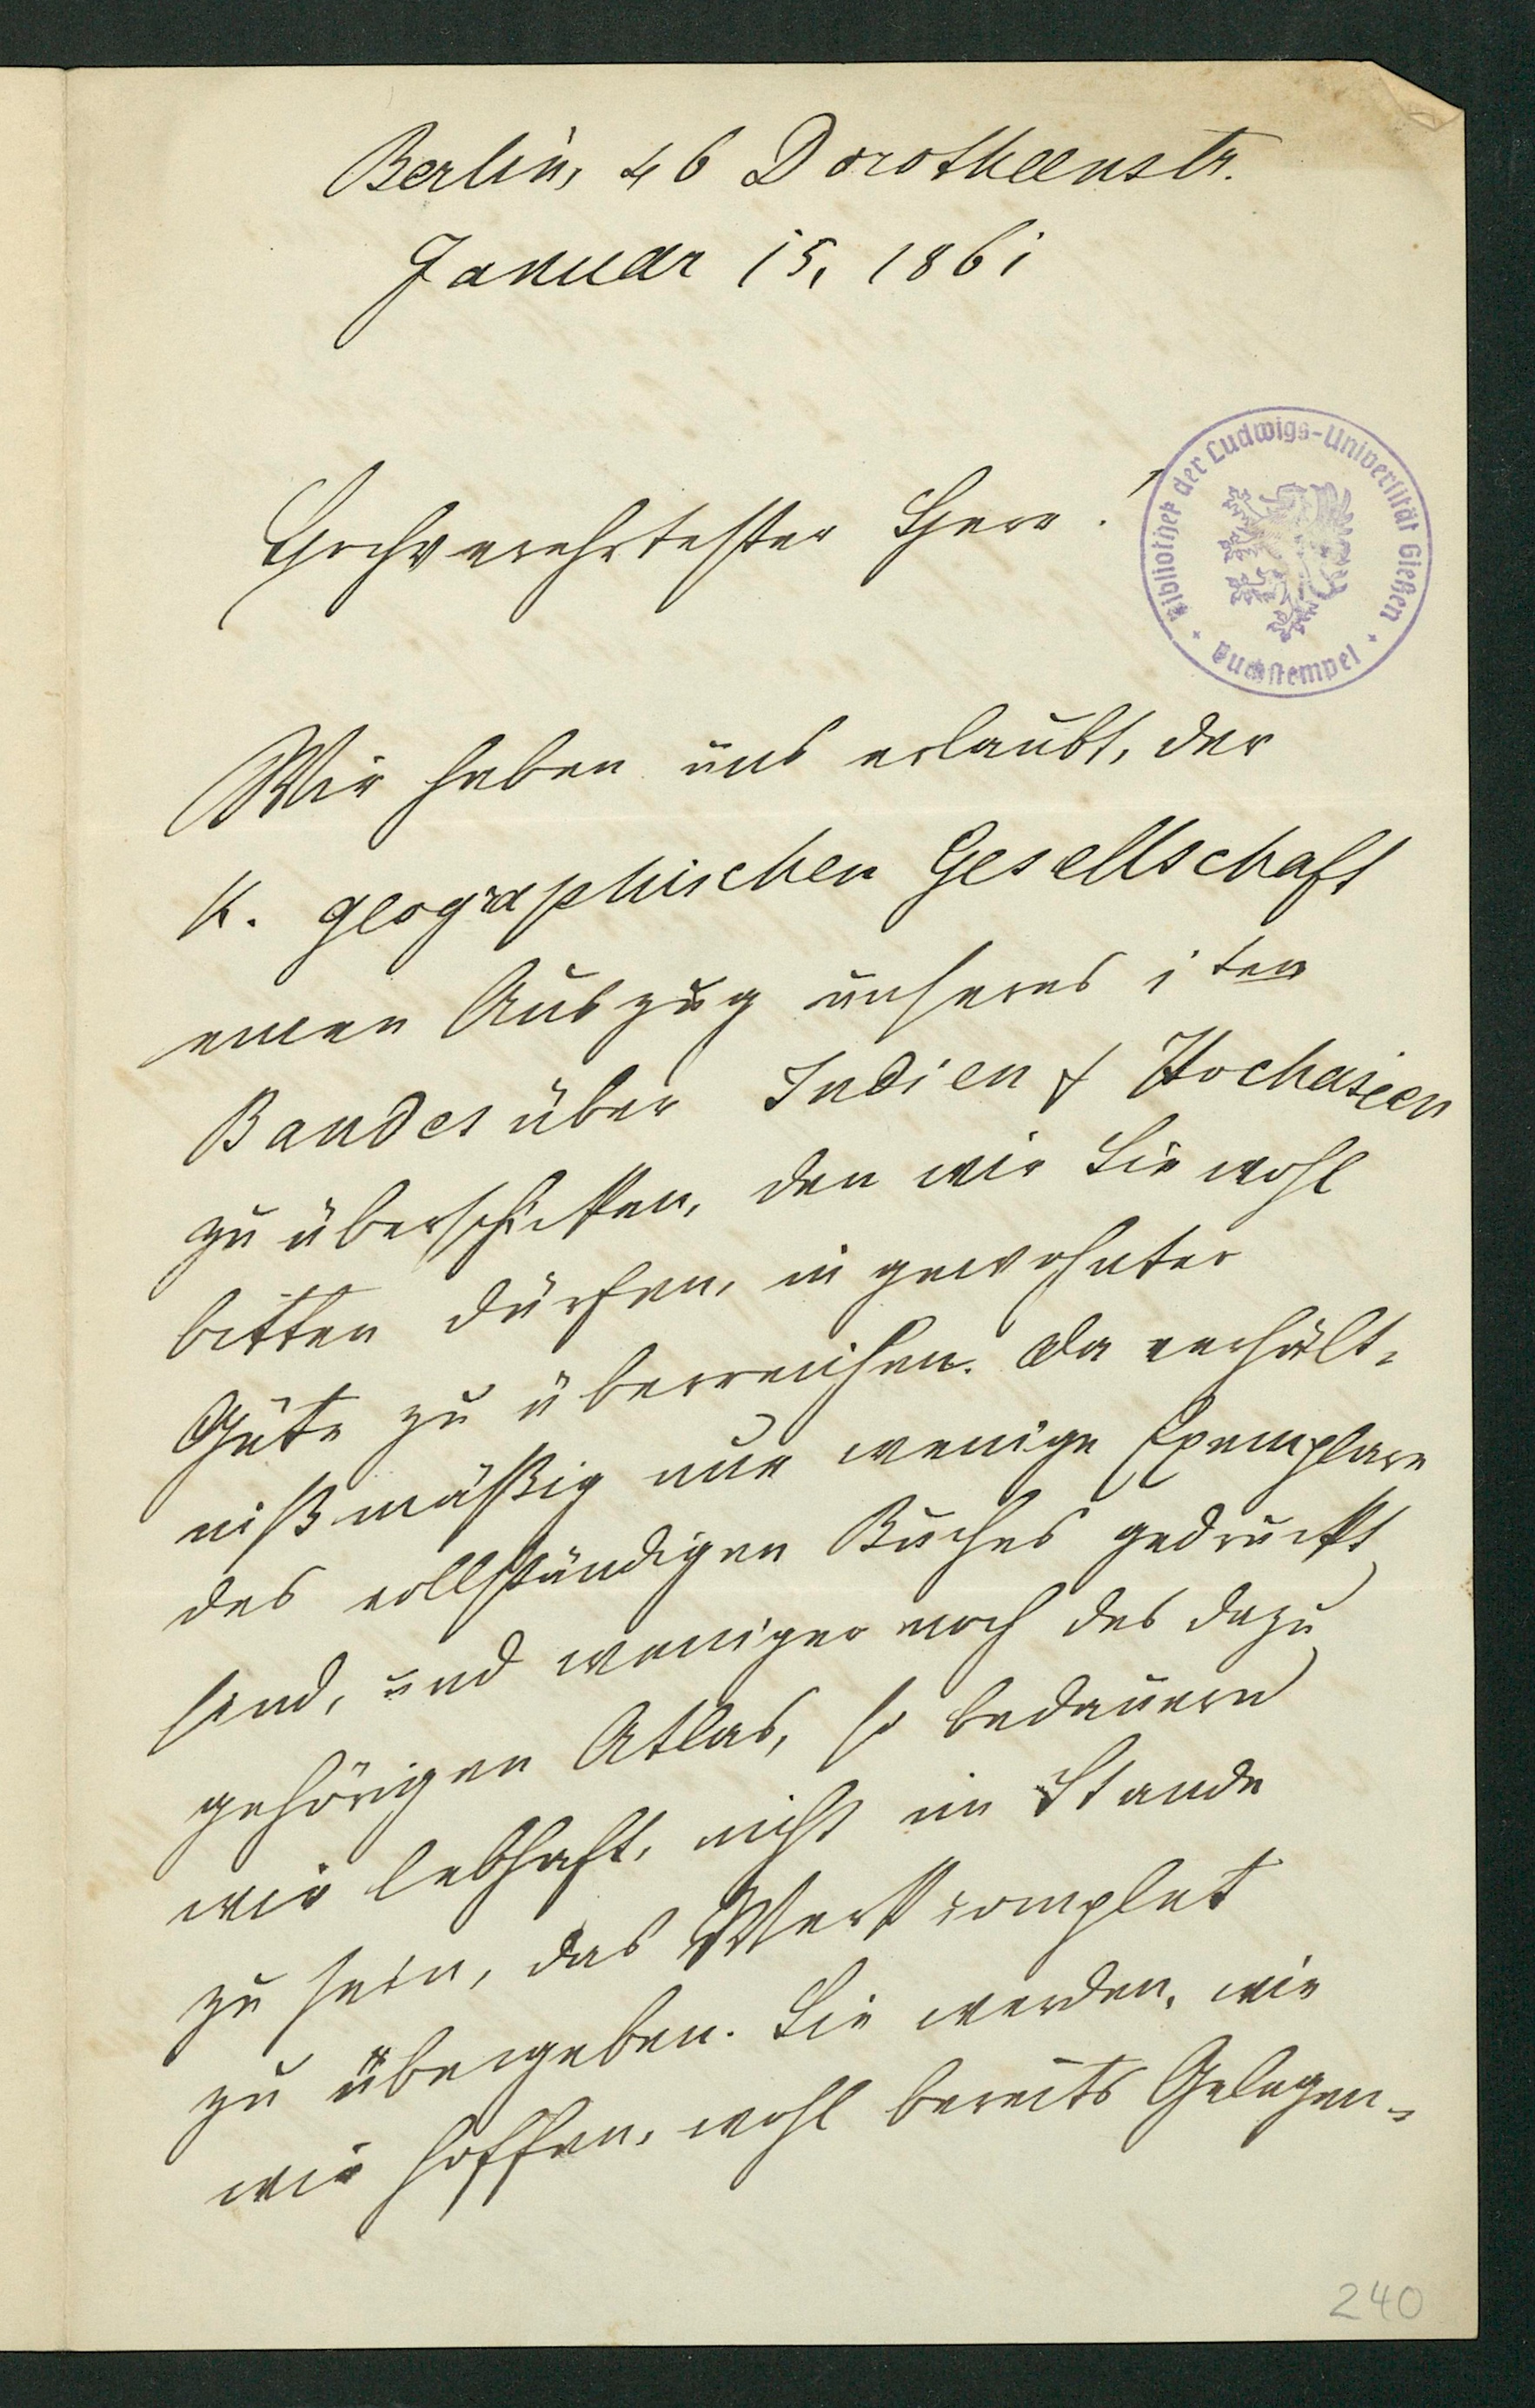 Berlin, 46 Dorotheenstr.
Januar 15, 1861
Hochverehrtester Herr!
Bibliothek der Ludwigs-Universität Gießen
Buchstempel
Wir haben uns erlaubt, der
K. geographischen Gesellschaft
einen Auszug unseres 1ten
Bandes über Indien & Hochasien
zu überschicken, den wir Sie wohl
bitten dürfen, in gewohnter
Güte zu überreichen. Da verhält-
nißmäßig nur wenige Exemplare
des vollständigen Buches gedruckt
sind, und weniger noch des dazu
gehörigen Atlas, so bedauern
wir lebhaft, nicht im Stande
zu sein, das Werk complet
zu übergeben. Sie werden, wie
wir hoffen, wohl bereits Gelegen-
240